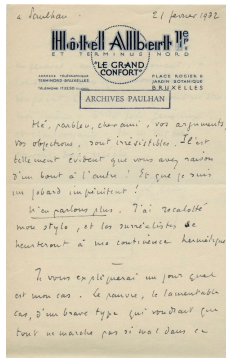 a Paulhan
21 février 1932
Hôtel Albert 1er
ET TERMINUS NORD
"LE GRAND
CONFORT"
ADRESSE TÉLÉGRAPHIQUE
TERMINORD-BRUXELLES
PLACE ROGIER &
JARDIN BOTANIQUE
BRUXELLES
ARCHIVES PAULHAN
Hé, parbleu, cher ami, vos arguments,
vos objections, sont irrésistibles. Il est
tellement évident que vous avez raison
d'un bout à l'autre ! Et que je suis
un jobard impénitent !
N'en parlons plus. J'ai recalotté
mon stylo, et les surréalistes se
heurteront à ma continence hermétique
Je vous expliquerai un jour quel
est mon cas. Le pauvre, le lamentable
cas, d'un brave type qui voudrait que
tout ne marche pas si mal dans ce